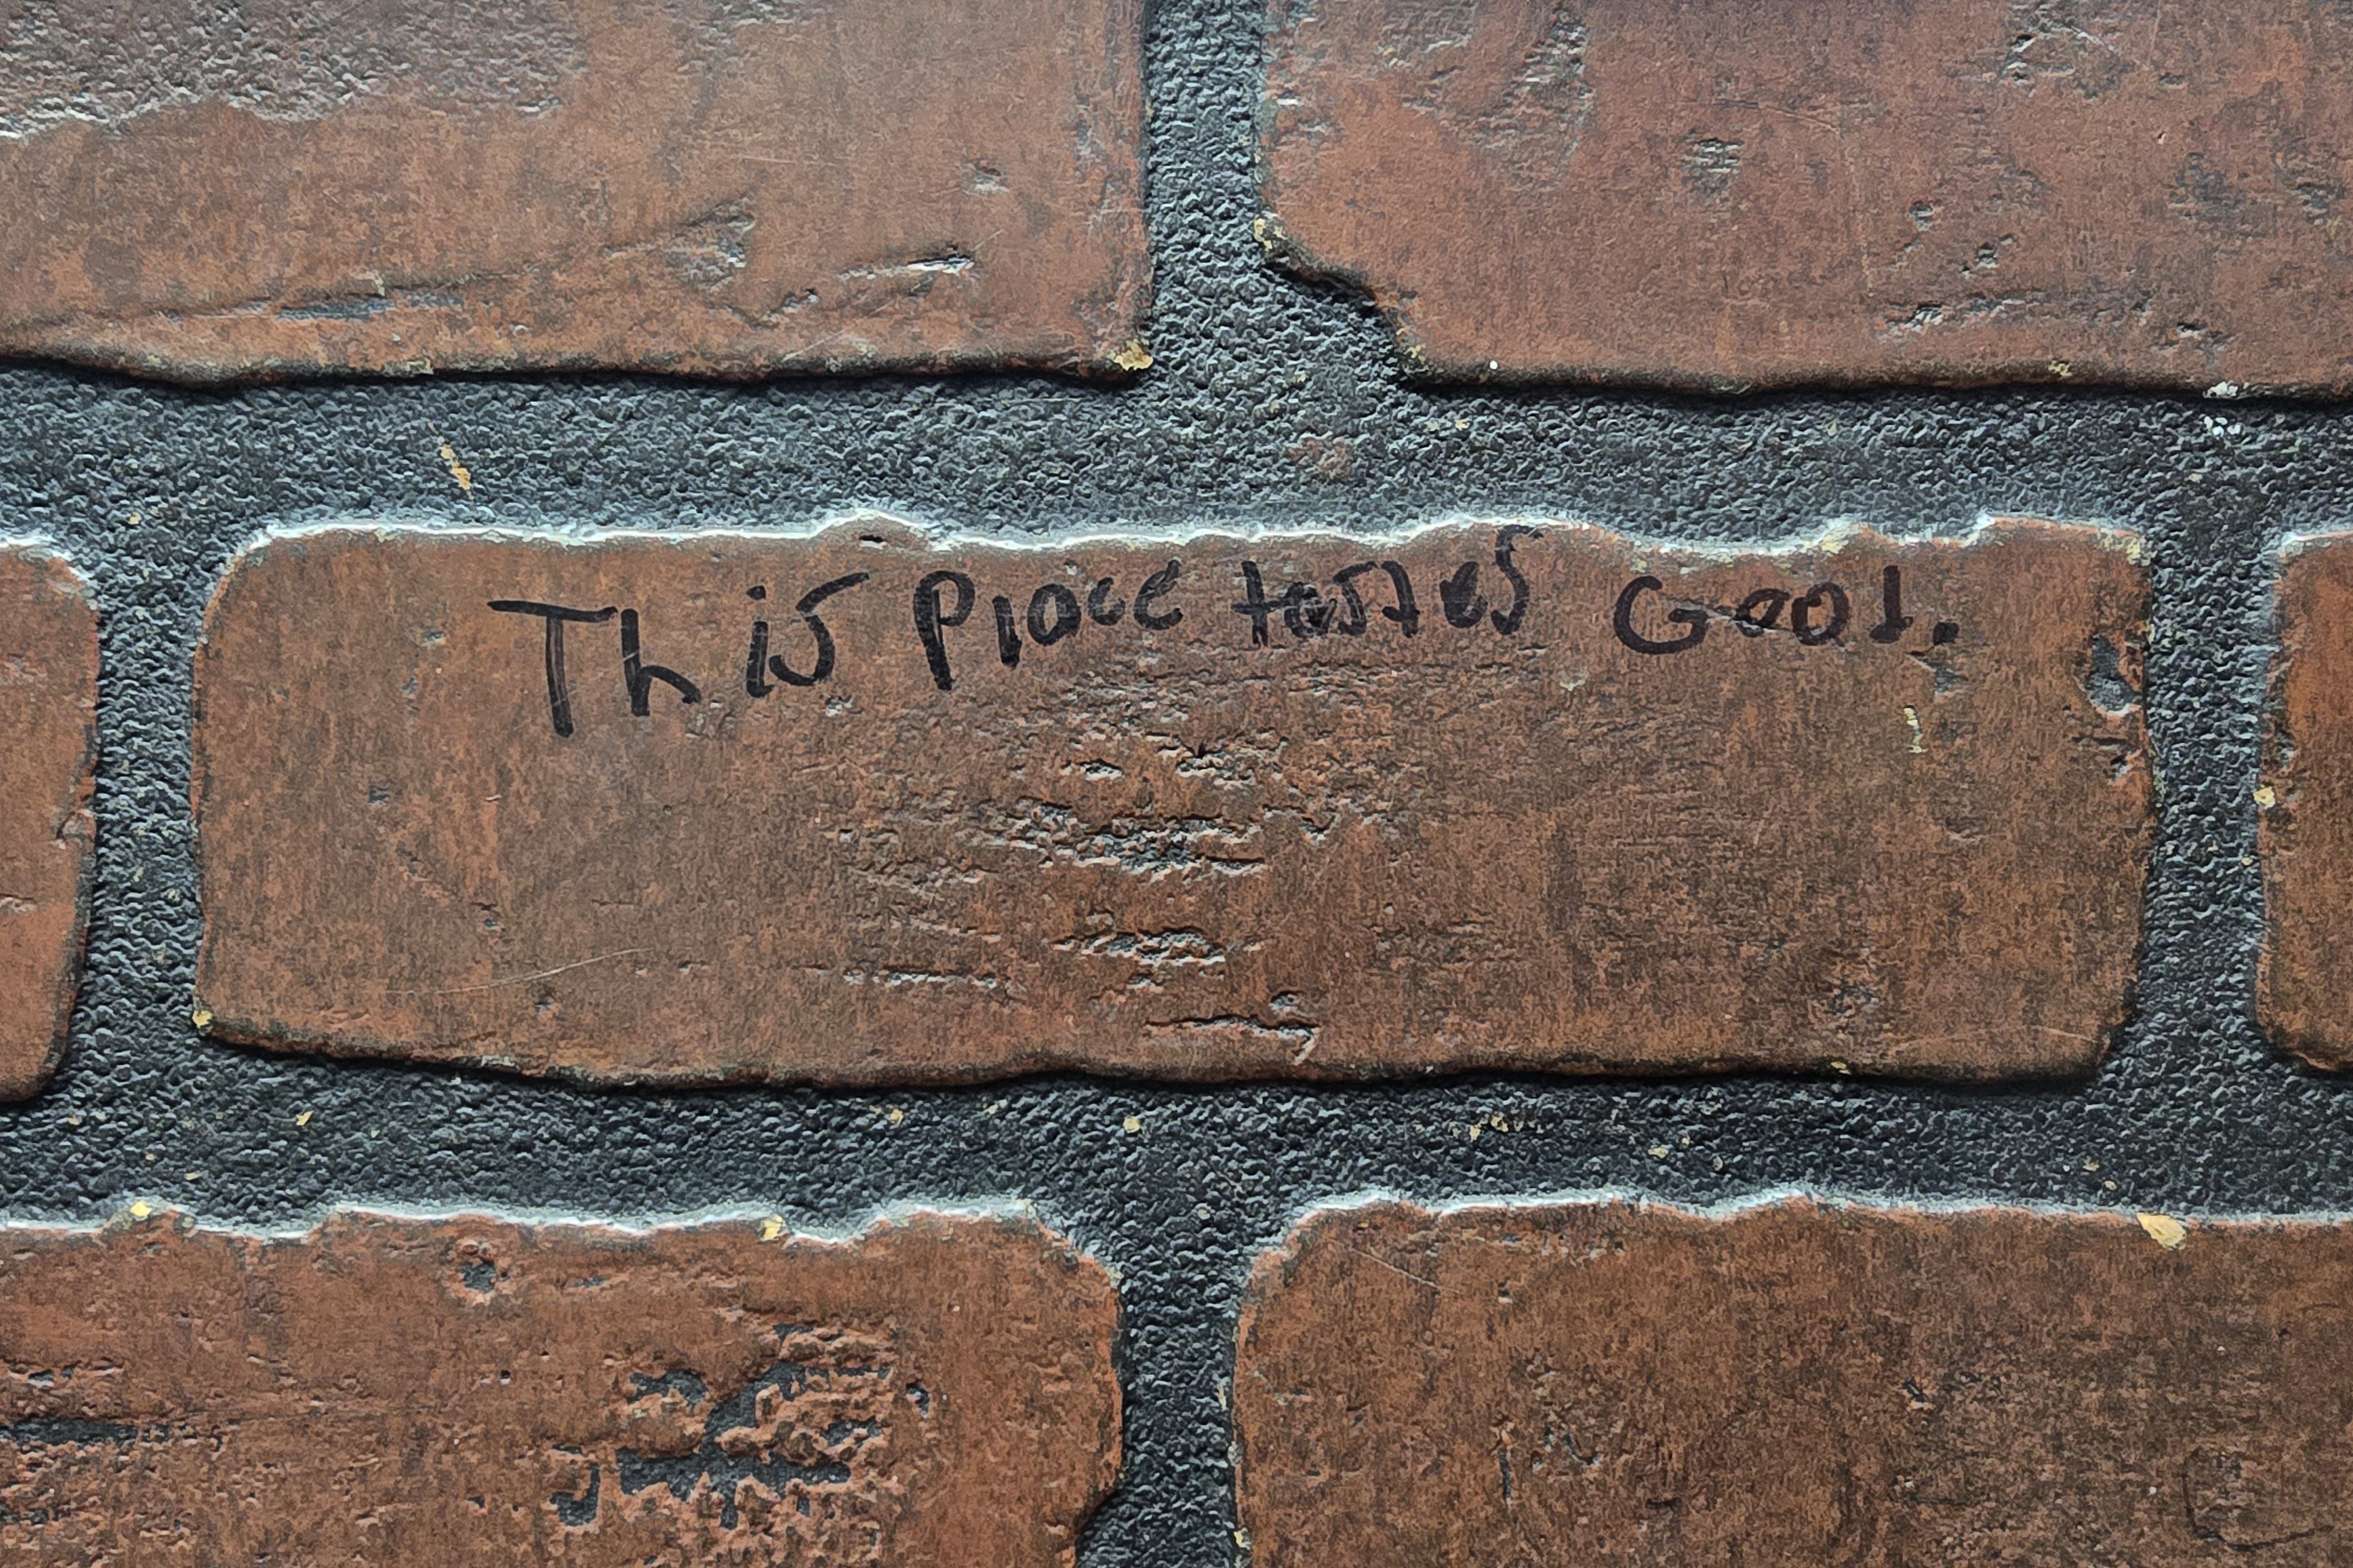 This Place tastes Good.